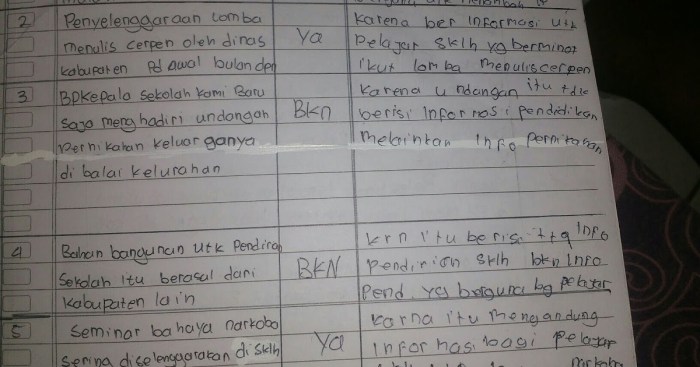 2 Penyelenggaraan lomba
menulis cerpen oleh dinas
kabupaten pd awal bulan dpn
Ya
karena ber informasi utk
pelajar sklh yg berminat
ikut lomba menulis cerpen
3 BPKepala sekolah kami Baru
saja menghadiri undangan
pernikahan keluarganya
di balai kelurahan
Bkn
karena undangan itu tdk
berisi informasi pendidikan
melainkan info pernikahan
4 Bahan bangunan utk pendirian
sekolah itu berasal dari
kabupaten lain
BKN
krn itu berisi ttg info
pendirian sklh bkn info
pend. yg berguna bg pelajar
5 Seminar bahaya narkoba
sering diselenggarakan disklh
Ya
karna itu mengandung
informasi bagi pelajar